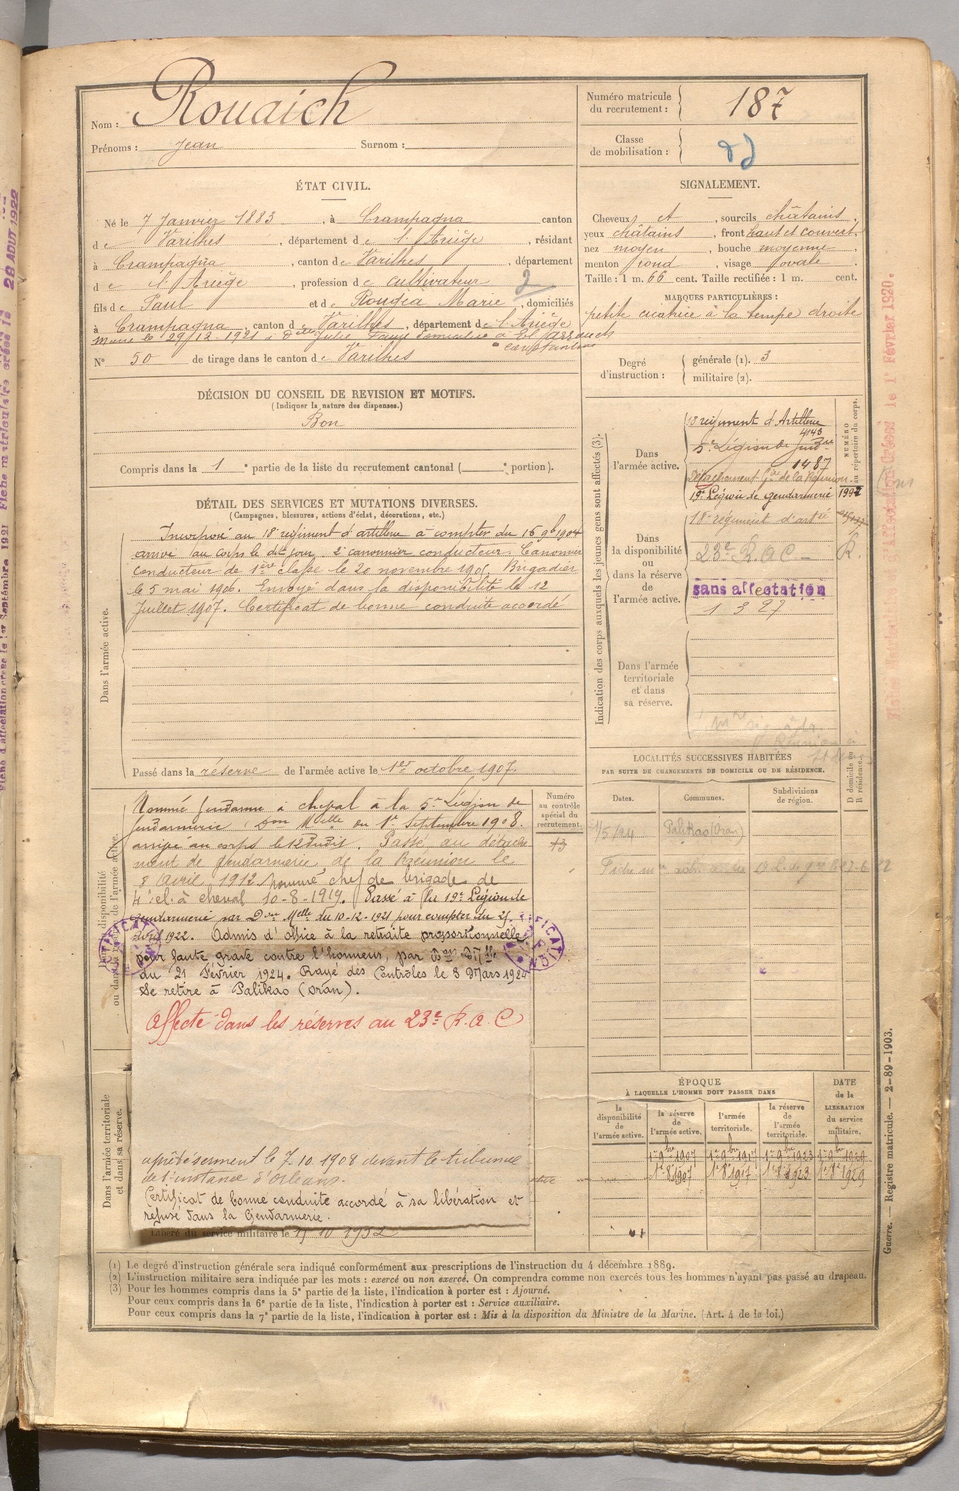 Nom : Rouaich
Prénoms : Jean Surnom :
Numéro matricule du recrutement : 187
Classe de mobilisation :
ÉTAT CIVIL.
Né le 7 Janvier 1883, à Crampagna canton
de Varilhes, département de l'Ariège, résidant
à Crampagna, canton de Varilhes, département
de l'Ariège, profession de cultivateur 2
fils de Paul et de Rougea Marie, domiciliés
à Crampagna, canton de Varilhes, département de l'Ariège
Marié le 29/12-1921 à
N° 50 de tirage dans le canton de Varilhes
SIGNALEMENT.
Cheveux et, sourcils châtains,
yeux châtains, front haut et couvert,
nez moyen, bouche moyenne,
menton rond, visage ovale.
Taille : 1 m. 66 cent. Taille rectifiée : 1 m. cent.
MARQUES PARTICULIÈRES :
petite cicatrice à la tempe droite
Degré d'instruction :
générale (1). 3
militaire (2).
DÉCISION DU CONSEIL DE REVISION ET MOTIFS.
(Indiquer la nature des dispenses.)
Bon
Compris dans la 1e partie de la liste du recrutement cantonal ( e portion).
DÉTAIL DES SERVICES ET MUTATIONS DIVERSES.
(Campagnes, blessures, actions d'éclat, décorations, etc.)
Dans l'armée active.
Incorporé au 18e régiment d'artillerie à compter du 16 9bre 1904
arrivé au corps le dit jour, 2e canonnier conducteur. Canonnier
conducteur de 1ère classe le 20 novembre 1905. Brigadier
le 5 mai 1906. Envoyé dans la disponibilité le 12
Juillet 1907. Certificat de bonne conduite accordé
Passé dans la réserve de l'armée active le 1er octobre 1907.
Indication des corps auxquels les jeunes gens sont affectés (3).
NUMÉRO au répertoire du corps.
Dans l'armée active.
18 régiment d'Artillerie
4145
5e Légion de
1487
Détachement Gie de la Réunion
19e Légion de gendarmerie 1992
Dans la disponibilité ou dans la réserve de l'armée active.
18e régiment d'artie
23e R.A.C. R.
sans affectation
1 3 27
Dans l'armée territoriale et dans sa réserve.
LOCALITÉS SUCCESSIVES HABITÉES
PAR SUITE DE CHANGEMENTS DE DOMICILE OU DE RÉSIDENCE.
D domicile ou R résidence.
Dates. Communes. Subdivisions de région.
1/5/24 Palikao (Oran)
Numéro au contrôle spécial du recrutement.
Nommé Gendarme à cheval à la 5e Légion de
Gendarmerie Don Melle du 1er Septembre 1908.
arrivé au corps le Passé au détache-
ment de Gendarmerie de la Réunion le
8 Avril 1912 nommé chef de brigade de
4e cl. à cheval 10-8-1919. Passé à la 19e Légion de
Gendarmerie par Don Melle du 10-12-1921 pour compter du 25
avril 1922. Admis d'office à la retraite proportionnelle
pour faute grave contre l'honneur, par Don Mlle
du 21 Février 1924. Rayé des Contrôles le 8 Mars 1924
Se retire à Palikao (Oran).
Affecté dans les réserves au 23e R.A.C
a prêté serment le 7.10.1908 devant le tribunal
de 1e instance d'Orléans.
Certificat de bonne conduite accordé à sa libération et
refusé dans la Gendarmerie.
Libéré du service militaire le
Dans l'armée territoriale et dans sa réserve.
ÉPOQUE
À LAQUELLE L'HOMME DOIT PASSER DANS
la disponibilité de l'armée active.
la réserve de l'armée active.
l'armée territoriale.
la réserve de l'armée territoriale.
DATE de la LIBÉRATION du service militaire.
1er 8 1907 1er 8 1917 1er 8 1923 1er 8 1929
(1) Le degré d'instruction générale sera indiqué conformément aux prescriptions de l'instruction du 4 décembre 1889.
(2) L'instruction militaire sera indiquée par les mots : exercé ou non exercé. On comprendra comme non exercés tous les hommes n'ayant pas passé au drapeau.
(3) Pour les hommes compris dans la 5e partie de la liste, l'indication à porter est : Ajourné.
Pour ceux compris dans la 6e partie de la liste, l'indication à porter est : Service auxiliaire.
Pour ceux compris dans la 7e partie de la liste, l'indication à porter est : Mis à la disposition du Ministre de la Marine. (Art. 4 de la loi.)
Guerre. — Registre matricule. — 2-89-1903.
le 1er Février 1920.
28 AOUT 1922